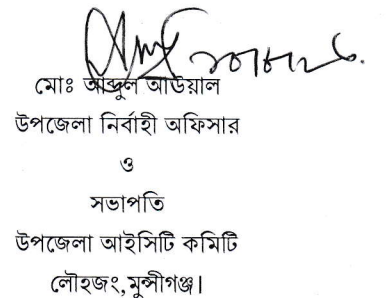 মোঃ আব্দুল আউয়াল
উপজেলা নির্বাহী অফিসার
ও
সভাপতি
উপজেলা আইসিটি কমিটি
লৌহজং,মুন্সীগঞ্জ।